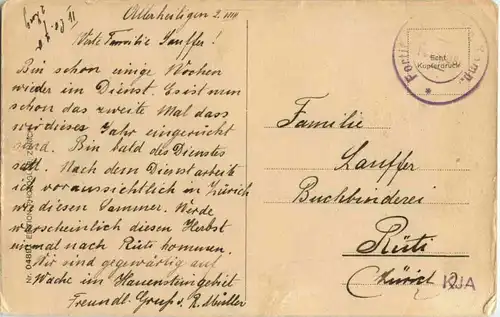 Allerheiligen 2. VIII
Werte Familie Lauffer!
Bin schon einige Wochen
wieder im Dienst. Es ist nun
schon das zweite Mal dass
wir dieses Jahr eingerückt
sind. Bin bald des Dienstes
satt. Nach dem Dienst arbeite
ich voraussichtlich in Zürich
wie diesen Sommer. Werde
warscheinlich diesen Herbst
einmal nach Rüti kommen.
Wir sind gegenwärtig auf
Wache im Hauensteingebiet
Freundl. Gruss v. R. Müller
Echt
Kupferdruck
Familie
Lauffer
Buchbinderei
Rüti
(Zürich)